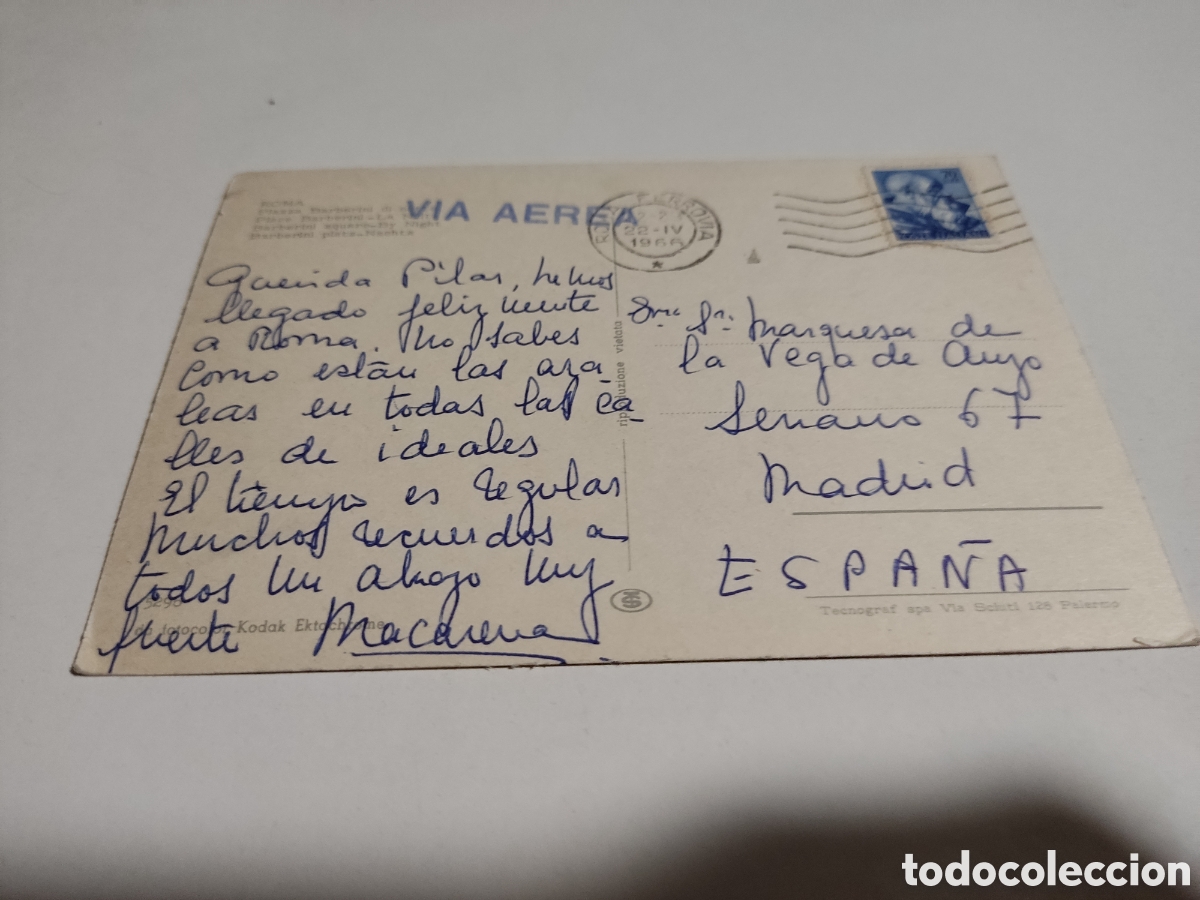 ROMA
Piazza Barberini
Place Barberini - La
Barberini square - By Night
Barberini platz - Nachts
VIA AEREA
ROMA FERROVIA
22-IV
1966
70
Querida Pilar, hemos
llegado felizmente
a Roma. No sabes
como están las aza
leas en todas las ca
lles de ideales
El tiempo es regular
Muchos recuerdos a
todos Un abrazo muy
fuerte Macarena
riproduzione vietata
Sra. Marquesa de
la Vega de Anzo
Serrano 67
Madrid
ESPAÑA
fotocolor Kodak Ektachrome
Tecnograf spa Via Sciuti 128 Palermo
todocoleccion